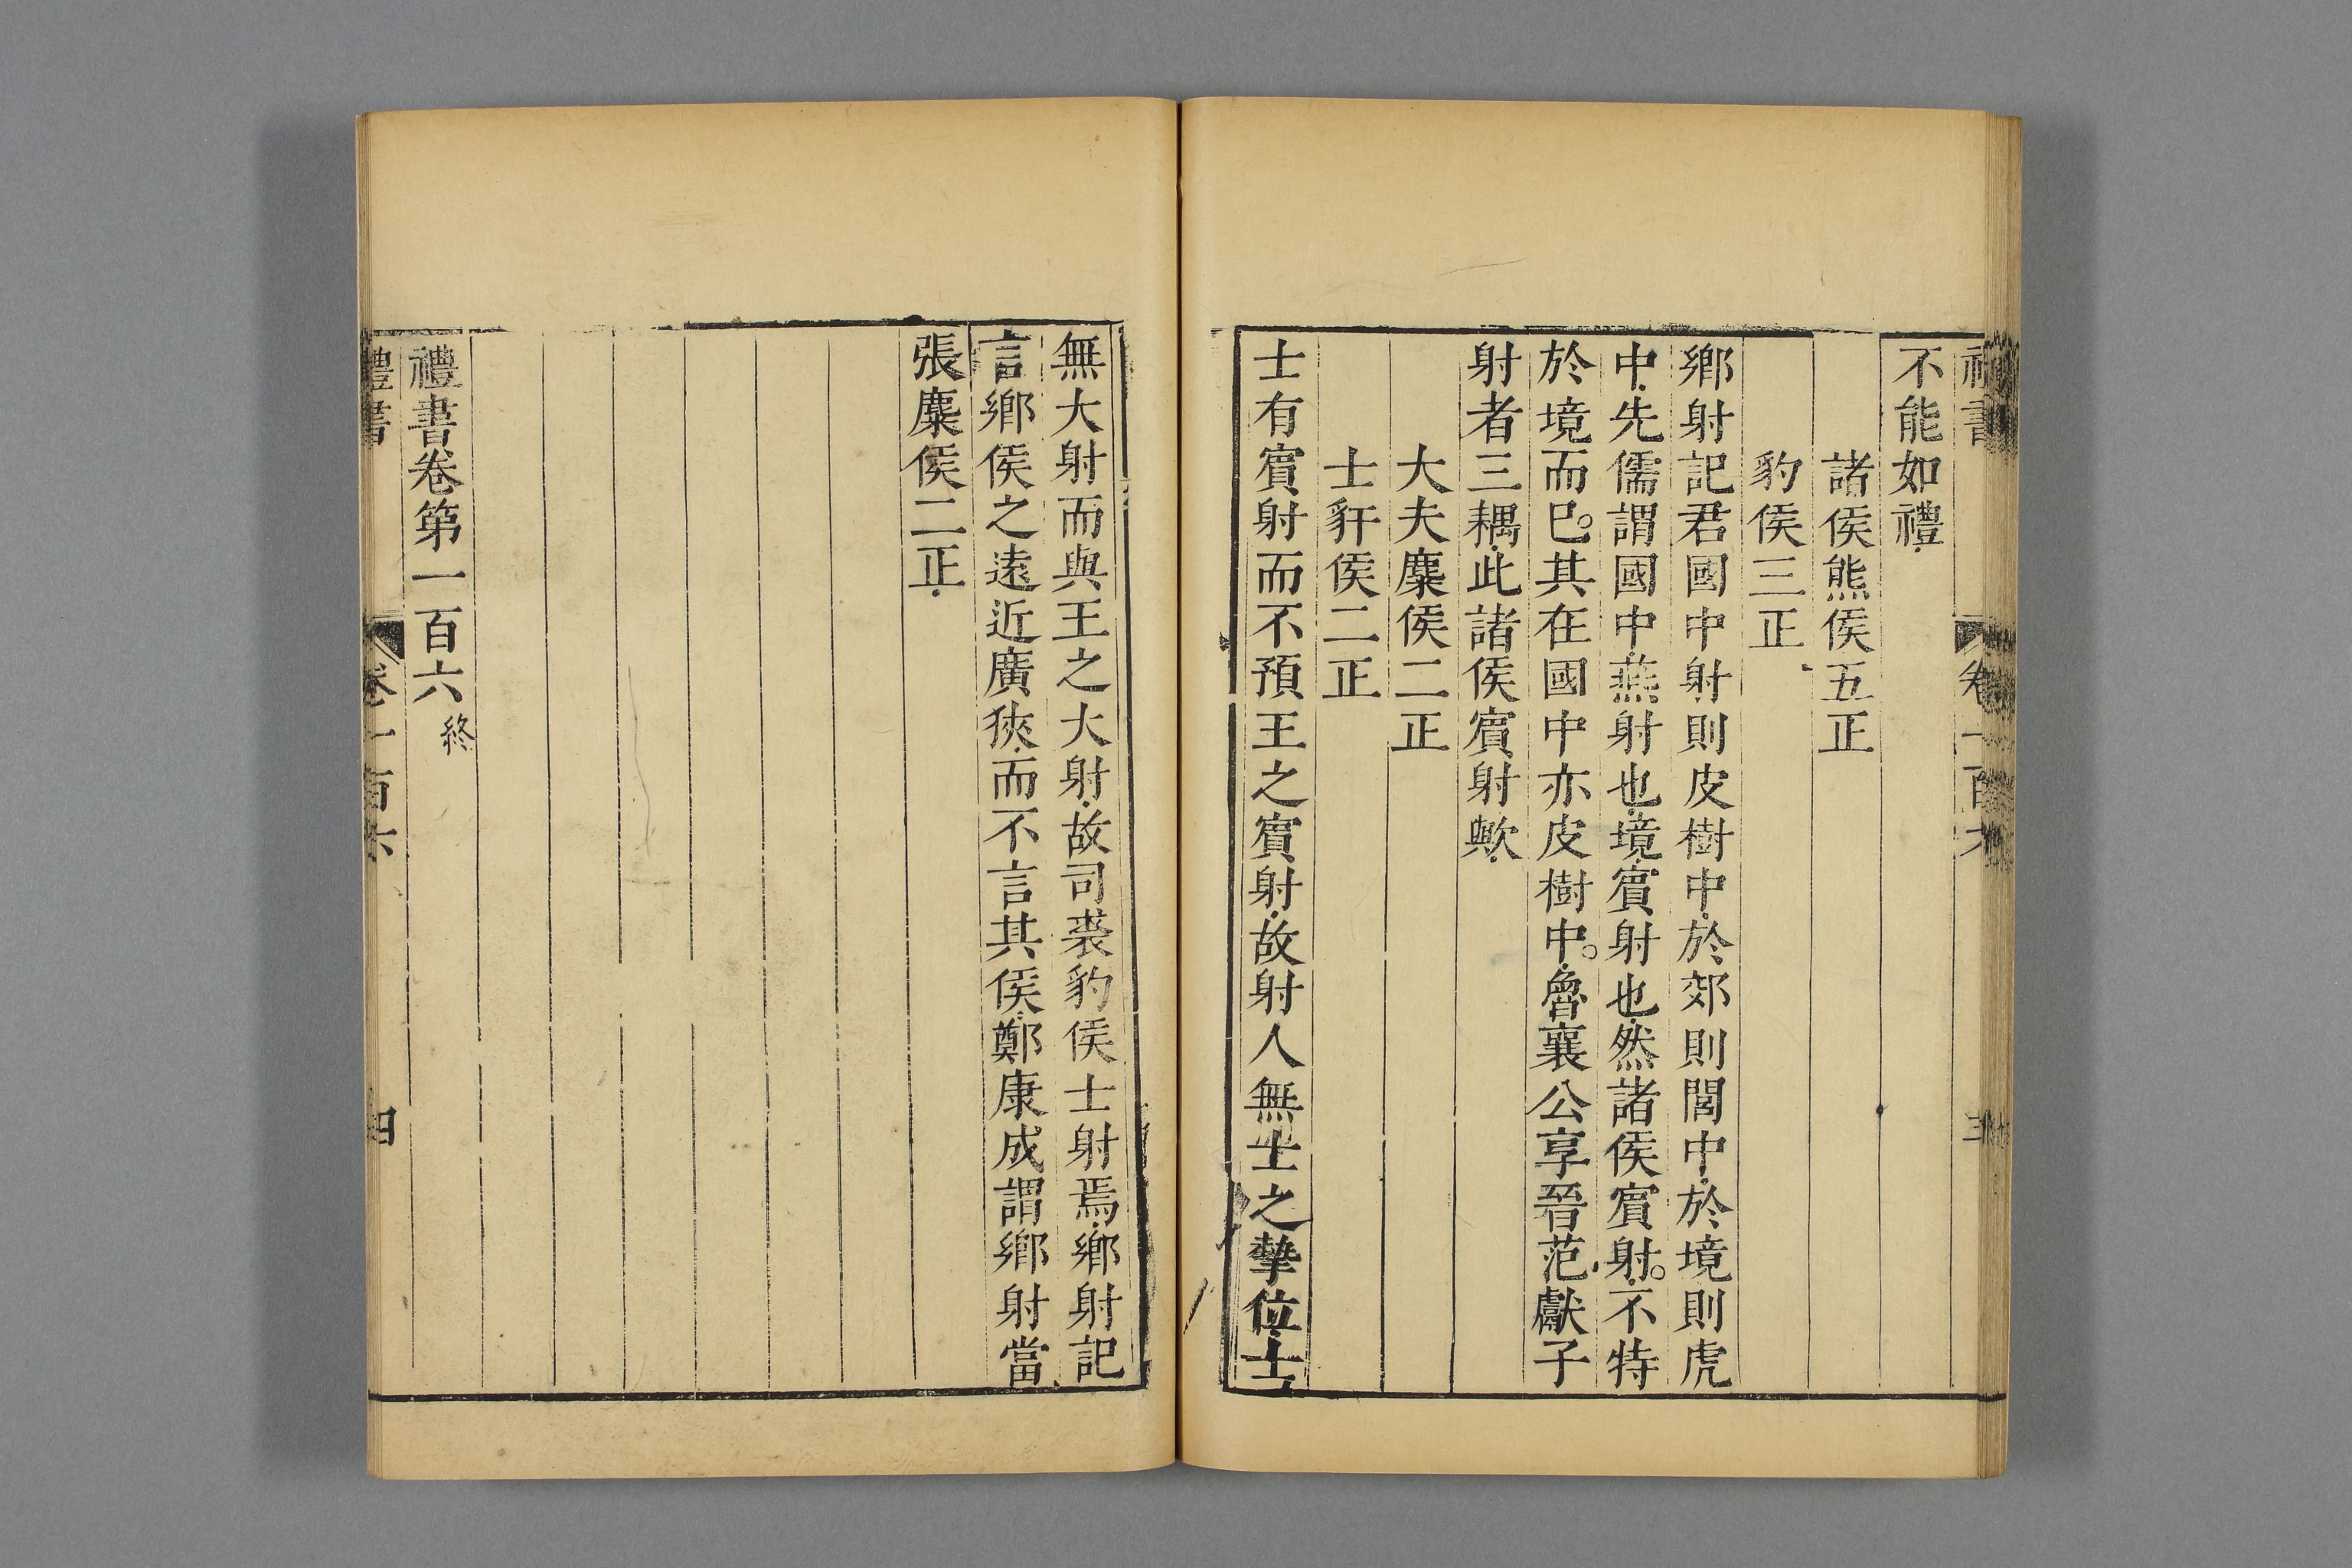 不能如禮
諸侯熊侯五正
豹侯三正
鄉射記君國中射則皮樹中於郊則閭中於境則虎
中先儒謂國中燕射也境賓射也然諸侯賓射不特
於境而巳其在國中亦皮樹中魯襄公享晉范獻子
射者三耦此諸侯賓射歟
大夫麋侯二正
士豻侯二正
士有賓射而不預王之賓射故射人無士之摯位士
無大射而與王之大射故司裘豹侯士射焉鄉射記
言鄉侯之遠近廣狹而不言其侯鄭康成謂鄉射當
張麋侯二正
禮書卷第一百六 終
禮書 卷一百六 四